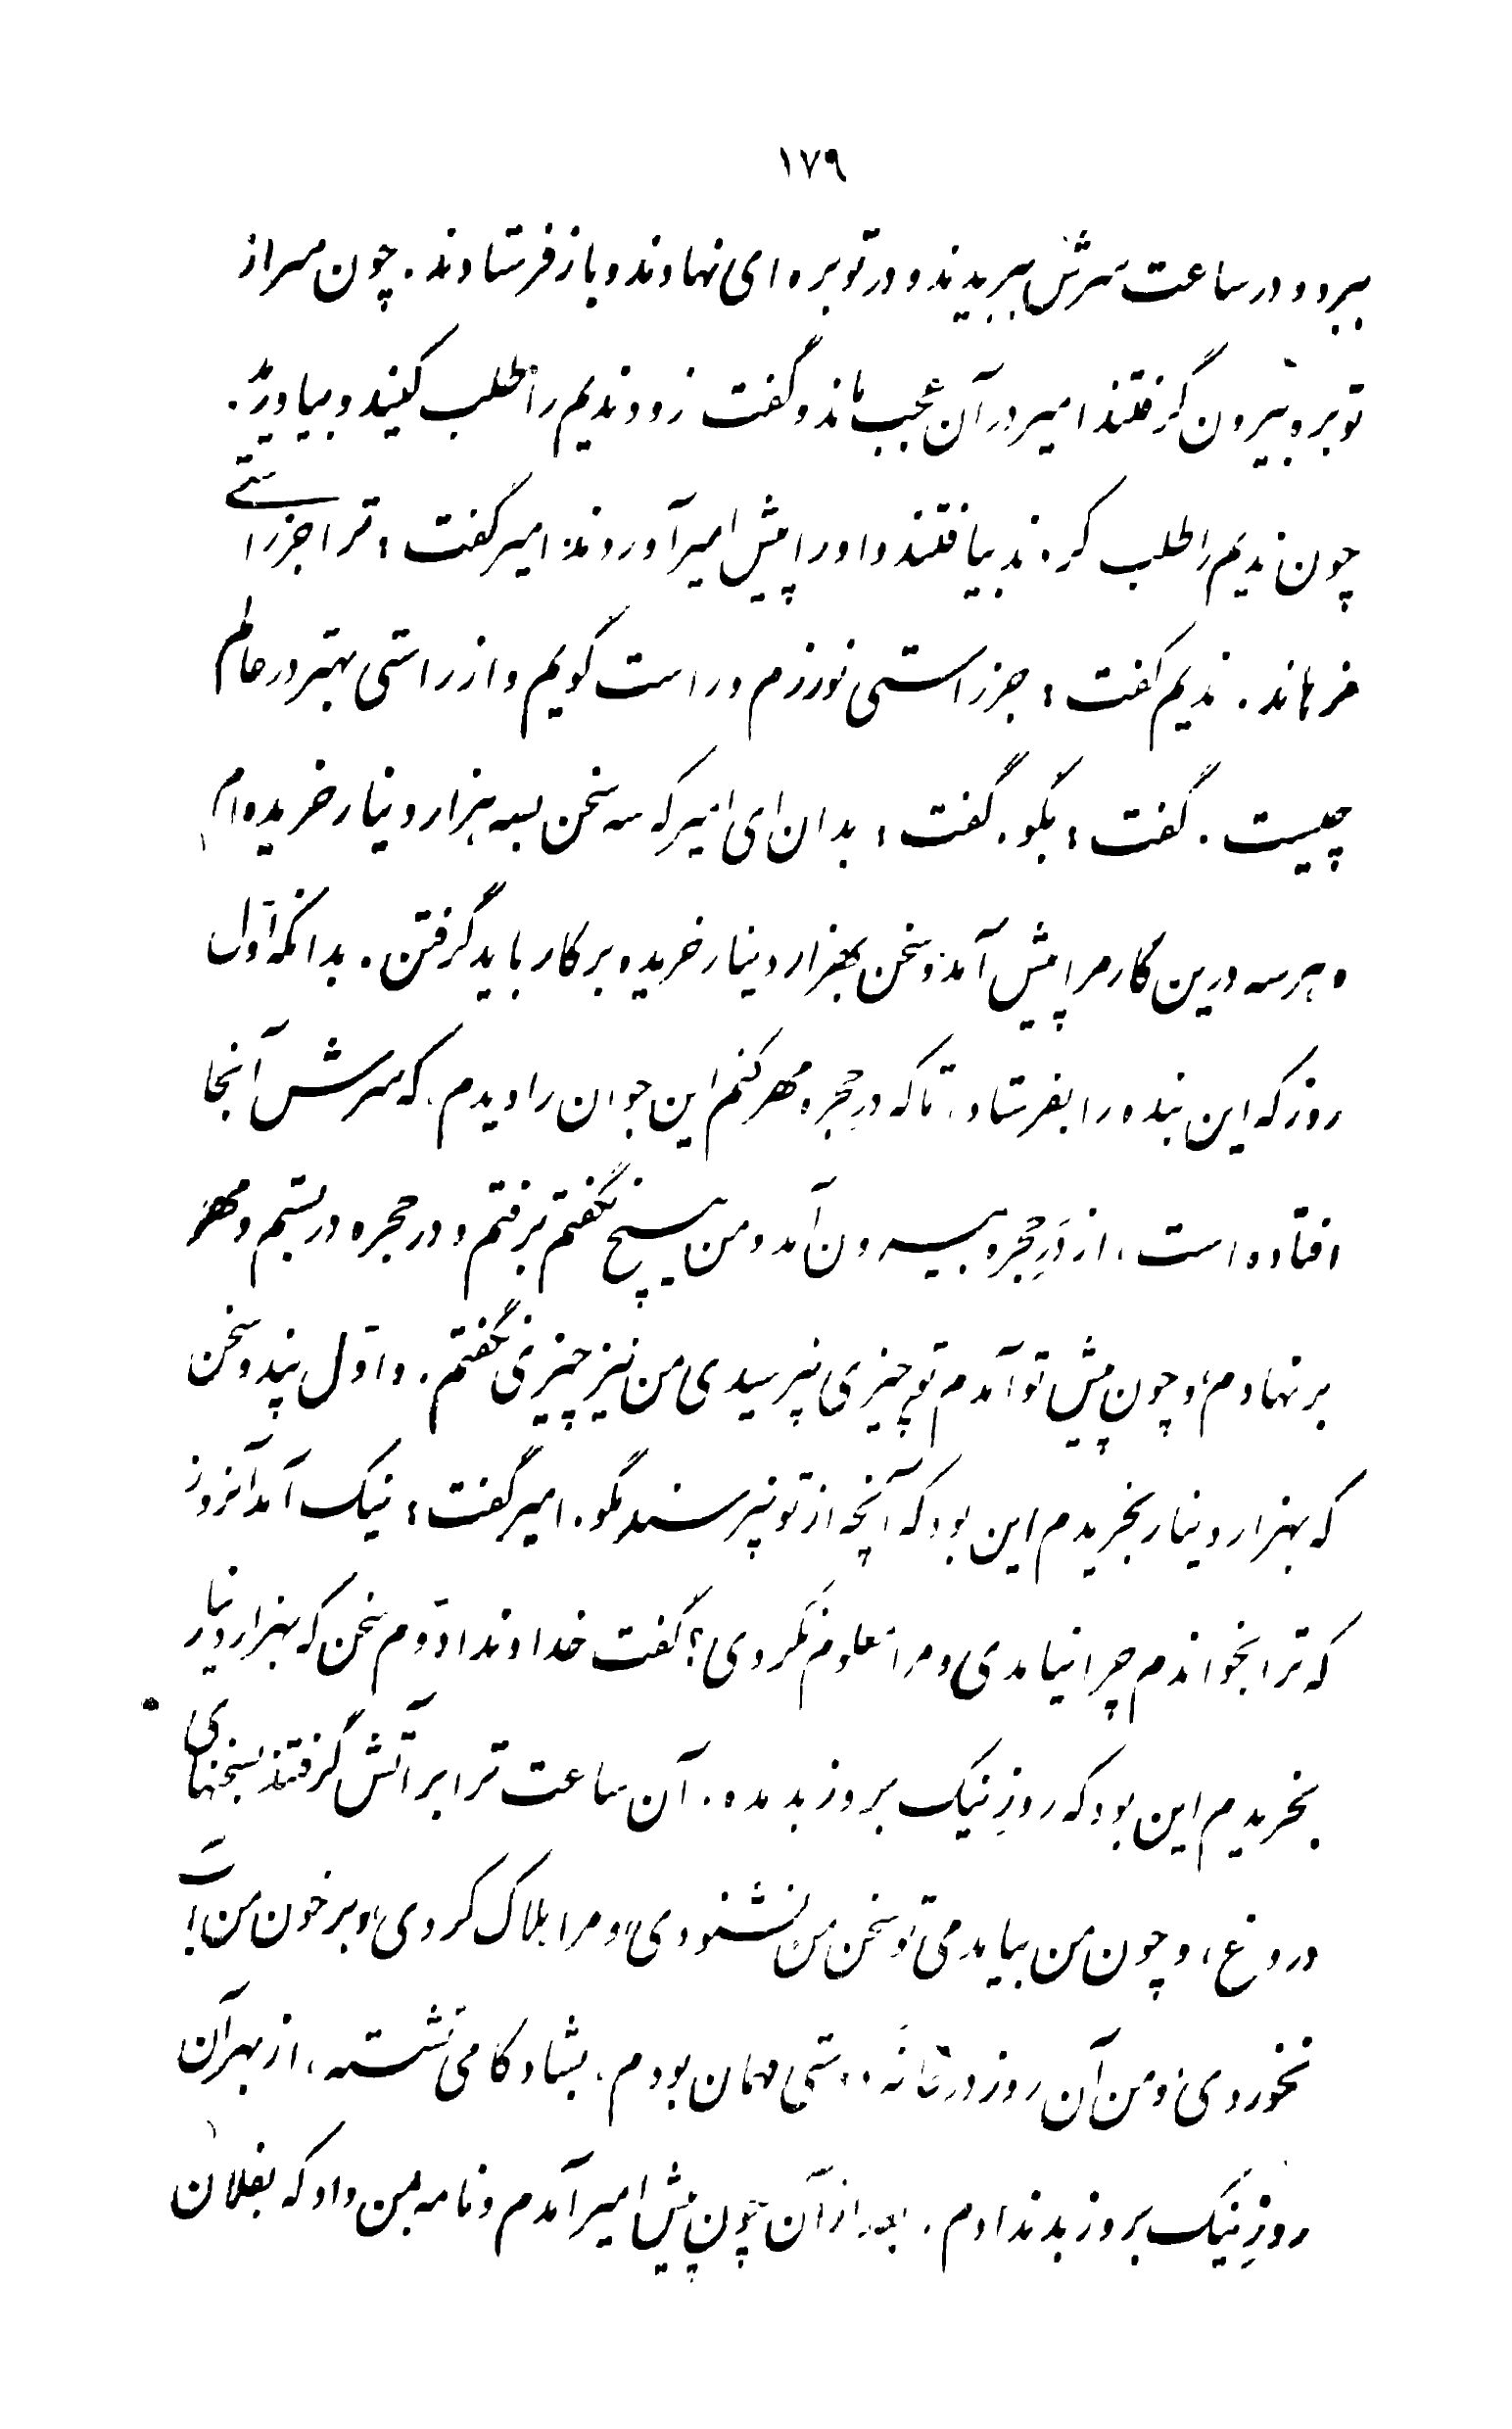 ۱۷۹
ببرد و در ساعت سرش ببریدند و در توبره ای نهادند و باز فرستادند. چون سر از
توبره بیرون گرفتند امیر در آن عجب ماند و گفت زود ندیم را طلب کنید و بیاورید.
چون ندیم را طلب کردند بیافتند و او را پیش امیر آوردند امیر گفت: ترا جز راستی
نرهاند. ندیم گفت: جز راستی نورزم و راست گویم و از راستی بهتر در عالم
چیست. گفت: بگو. گفت: بدان ای امیر که سه سخن بسه هزار دینار خریده‌ام
و هر سه درین کار مرا پیش آمد و سخن بهزار دینار خریده بر کار باید گرفتن. بدانکه اول
روز که این بنده را بفرستاد، تا که در حجره مهر کنم این جوان را دیدم، که سرش آنجا
افتاده است، از دَرِ حجره بیرون آمد و من هیچ نگفتم برفتم و در حجره در بستم و مهر
بر نهادم، و چون پیش تو آمدم تو چیزی نپرسیدی من نیز چیزی نگفتم. و اوّل پند و سخن
که بهزار دینار بخریدم این بود که آنچه از تو نپرسند مگو. امیر گفت: نیک آمد آنروز
که ترا بخواندم چرا نیامدی و مرا معلوم نکردی؟ گفت خداوندا دوّم سخن که بهزار دینار
بخریدم این بود که روزِ نیک بروز بد مده. آن ساعت ترا بر آتش گرفتند بسخنهای
دروغ، و چون من بیامدمی تو سخن من نشنودی، و مرا هلاک کردی، و بر خون من اِت
نخوردی، و من آن روز در خانه دوستی مهمان بودم، بشادکامی نشسته، از بهر آن
روزِ نیک بروز بد ندادم. بعد از آن چون پیش امیر آمدم و نامه بمن داد که بفلان